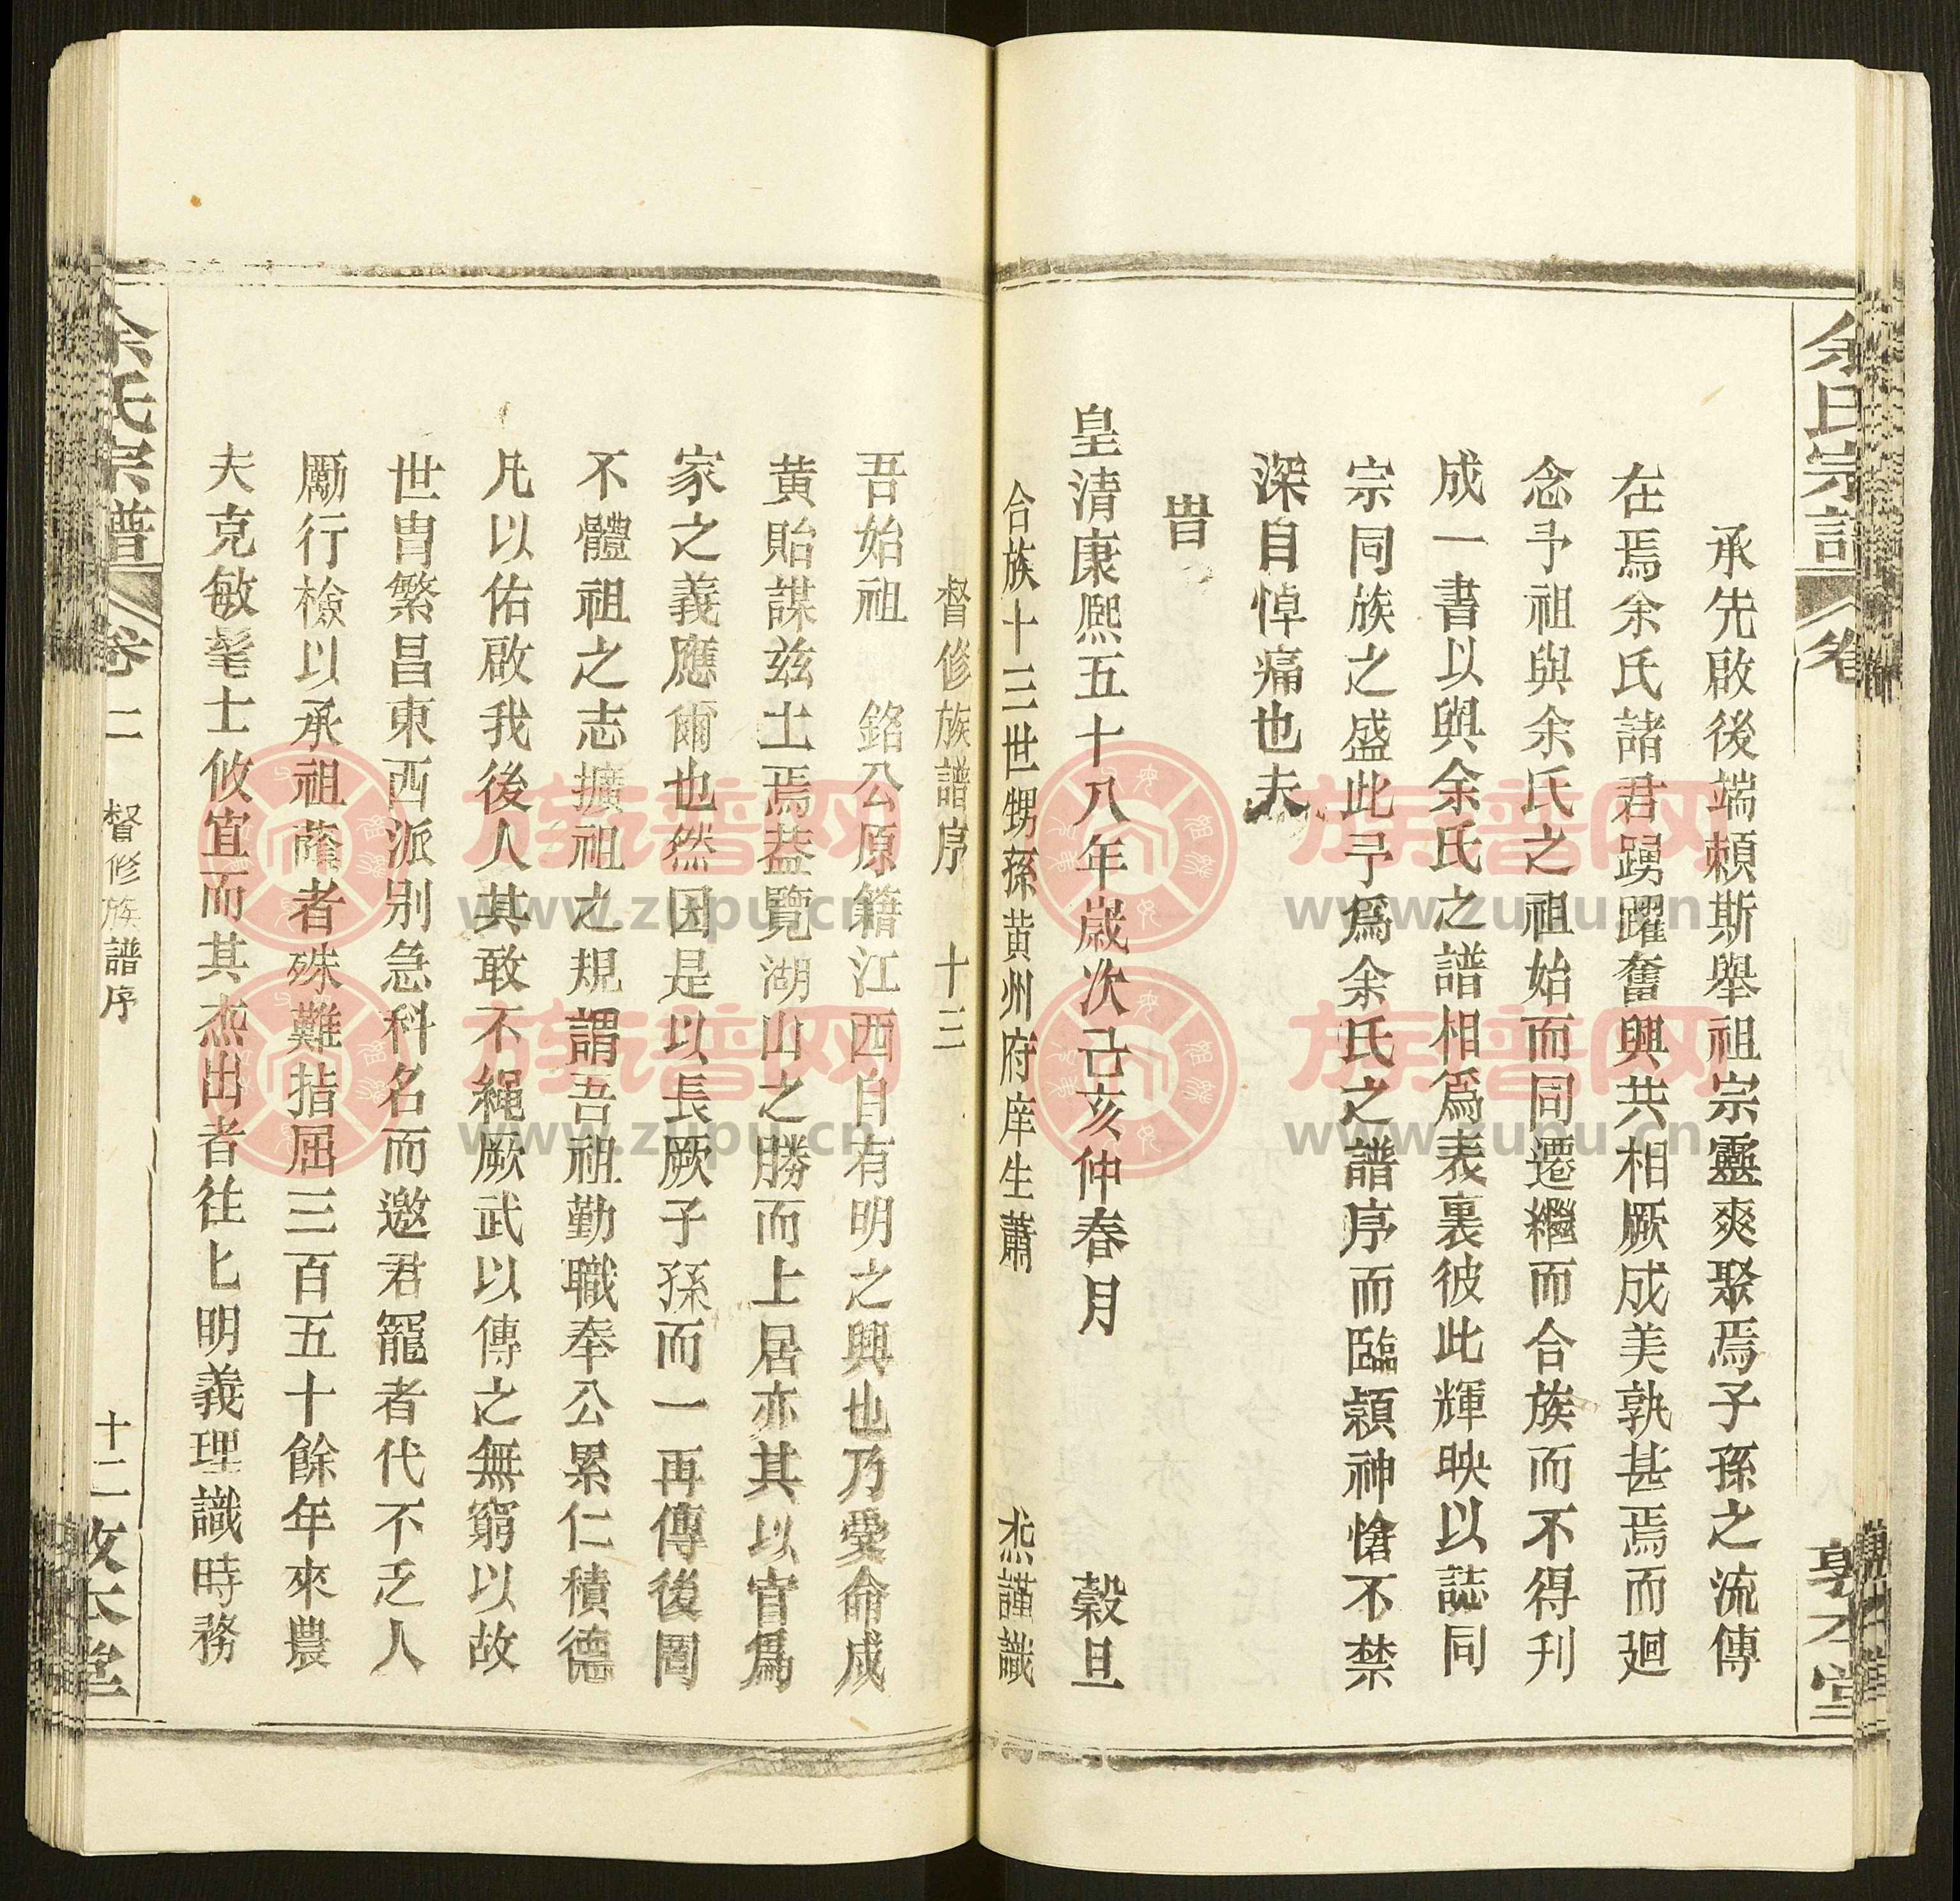 余氏宗譜
卷
敦本堂
承先啟後端頼斯舉祖宗靈爽聚焉子孫之流傳
在焉余氏諸君踴躍奮興共相厥成美孰甚焉而廻
念予祖與余氏之祖始而同遷繼而合族而不得刊
成一書以與余氏之譜相爲表裏彼此輝映以誌同
宗同族之盛此予爲余氏之譜序而臨穎神愴不禁
深自悼痛也夫
旹
皇清康熙五十八年歲次己亥仲春月 穀旦
合族十三世甥孫黄州府庠生蕭 烋謹識
督修族譜序 十三
吾始祖 銘公原籍江西自有明之興也乃受命成
黄貽謀茲土焉葢覽湖山之勝而上居亦其以官爲
家之義應爾也然因是以長厥子孫而一再傳後罔
不體祖之志擴祖之規謂吾祖勤職奉公累仁積德
凡以佑啟我後人其敢不繩厥武以傳之無窮以故
世胄繁昌東西派别急科名而邀君寵者代不乏人
勵行檢以承祖蔭者殊難指屈三百五十餘年來農
夫克敏髦士攸宜而其杰出者往匕明義理識時務
余氏宗譜
卷二
督修族譜序
十二
敦本堂
族谱网
www.zupu.cn
族谱网
www.zupu.cn
族谱网
www.zupu.cn
族谱网
www.zupu.cn